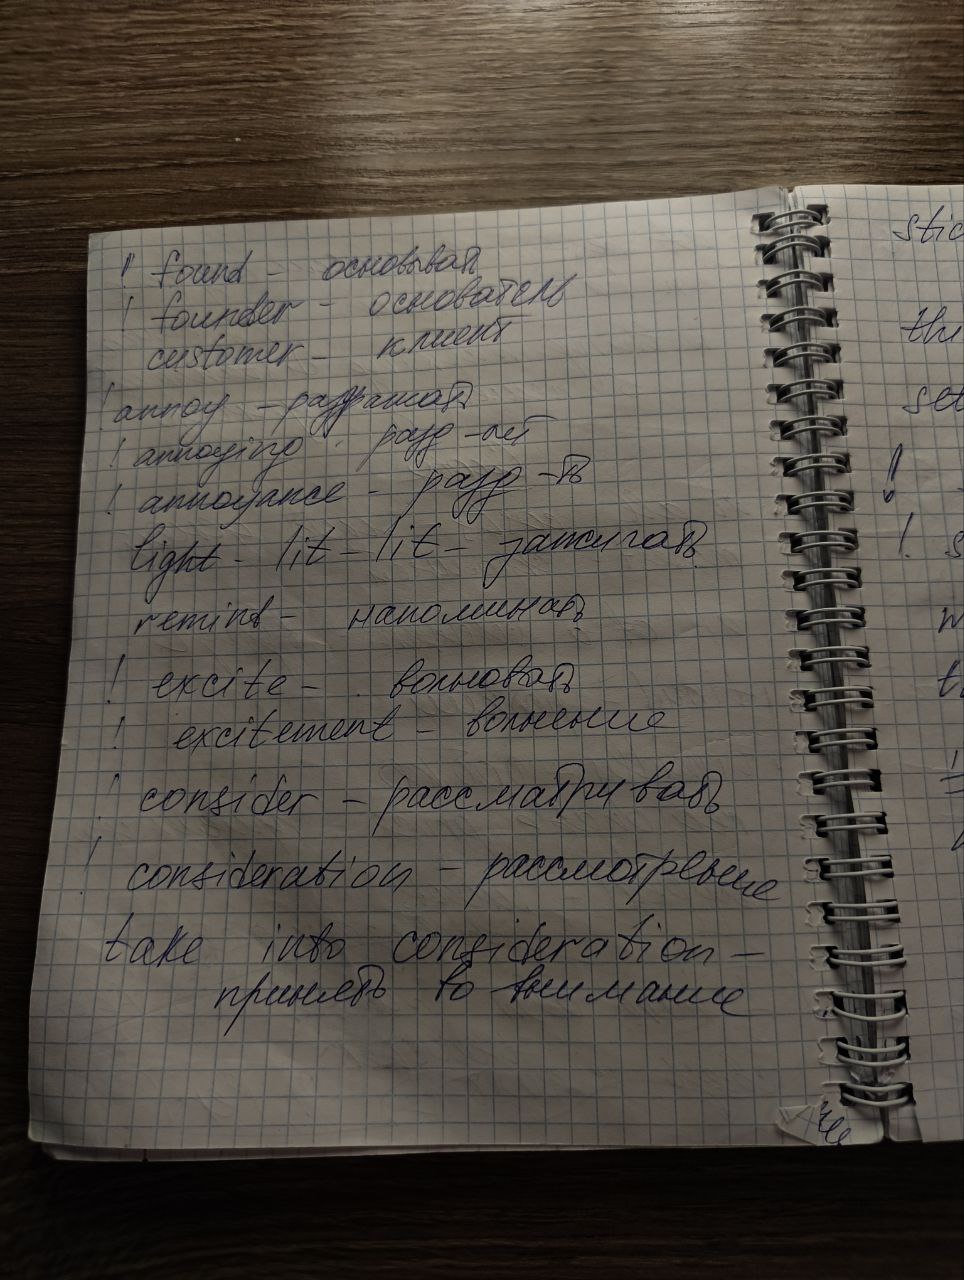 ! found - основывать
! founder - основатель
customer - клиент
! annoy - раздражать
! annoying разд-ет
! annoyance - разд-ть
light - lit - lit - зажигать
remind - напоминать
! excite - волновать
! excitement - волнение
! consider - рассматривать
! consideration - рассмотрение
take into consideration -
принять во внимание
stic
thi
set
!
! s